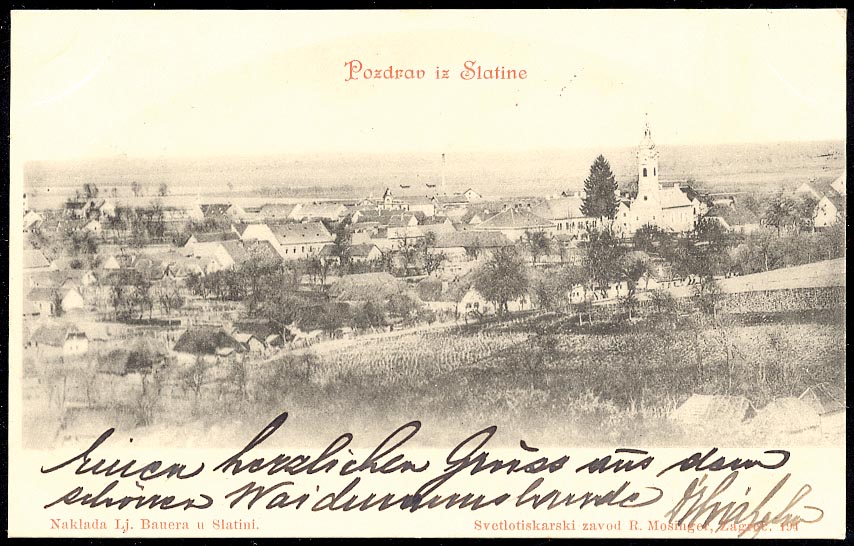 Pozdrav iz Slatine
Einen herzlichen Gruss aus dem
schönen Waidmannslande
Naklada Lj. Bauera u Slatini.
Svetlotiskarski zavod R. Mosinger, Zagreb. 194